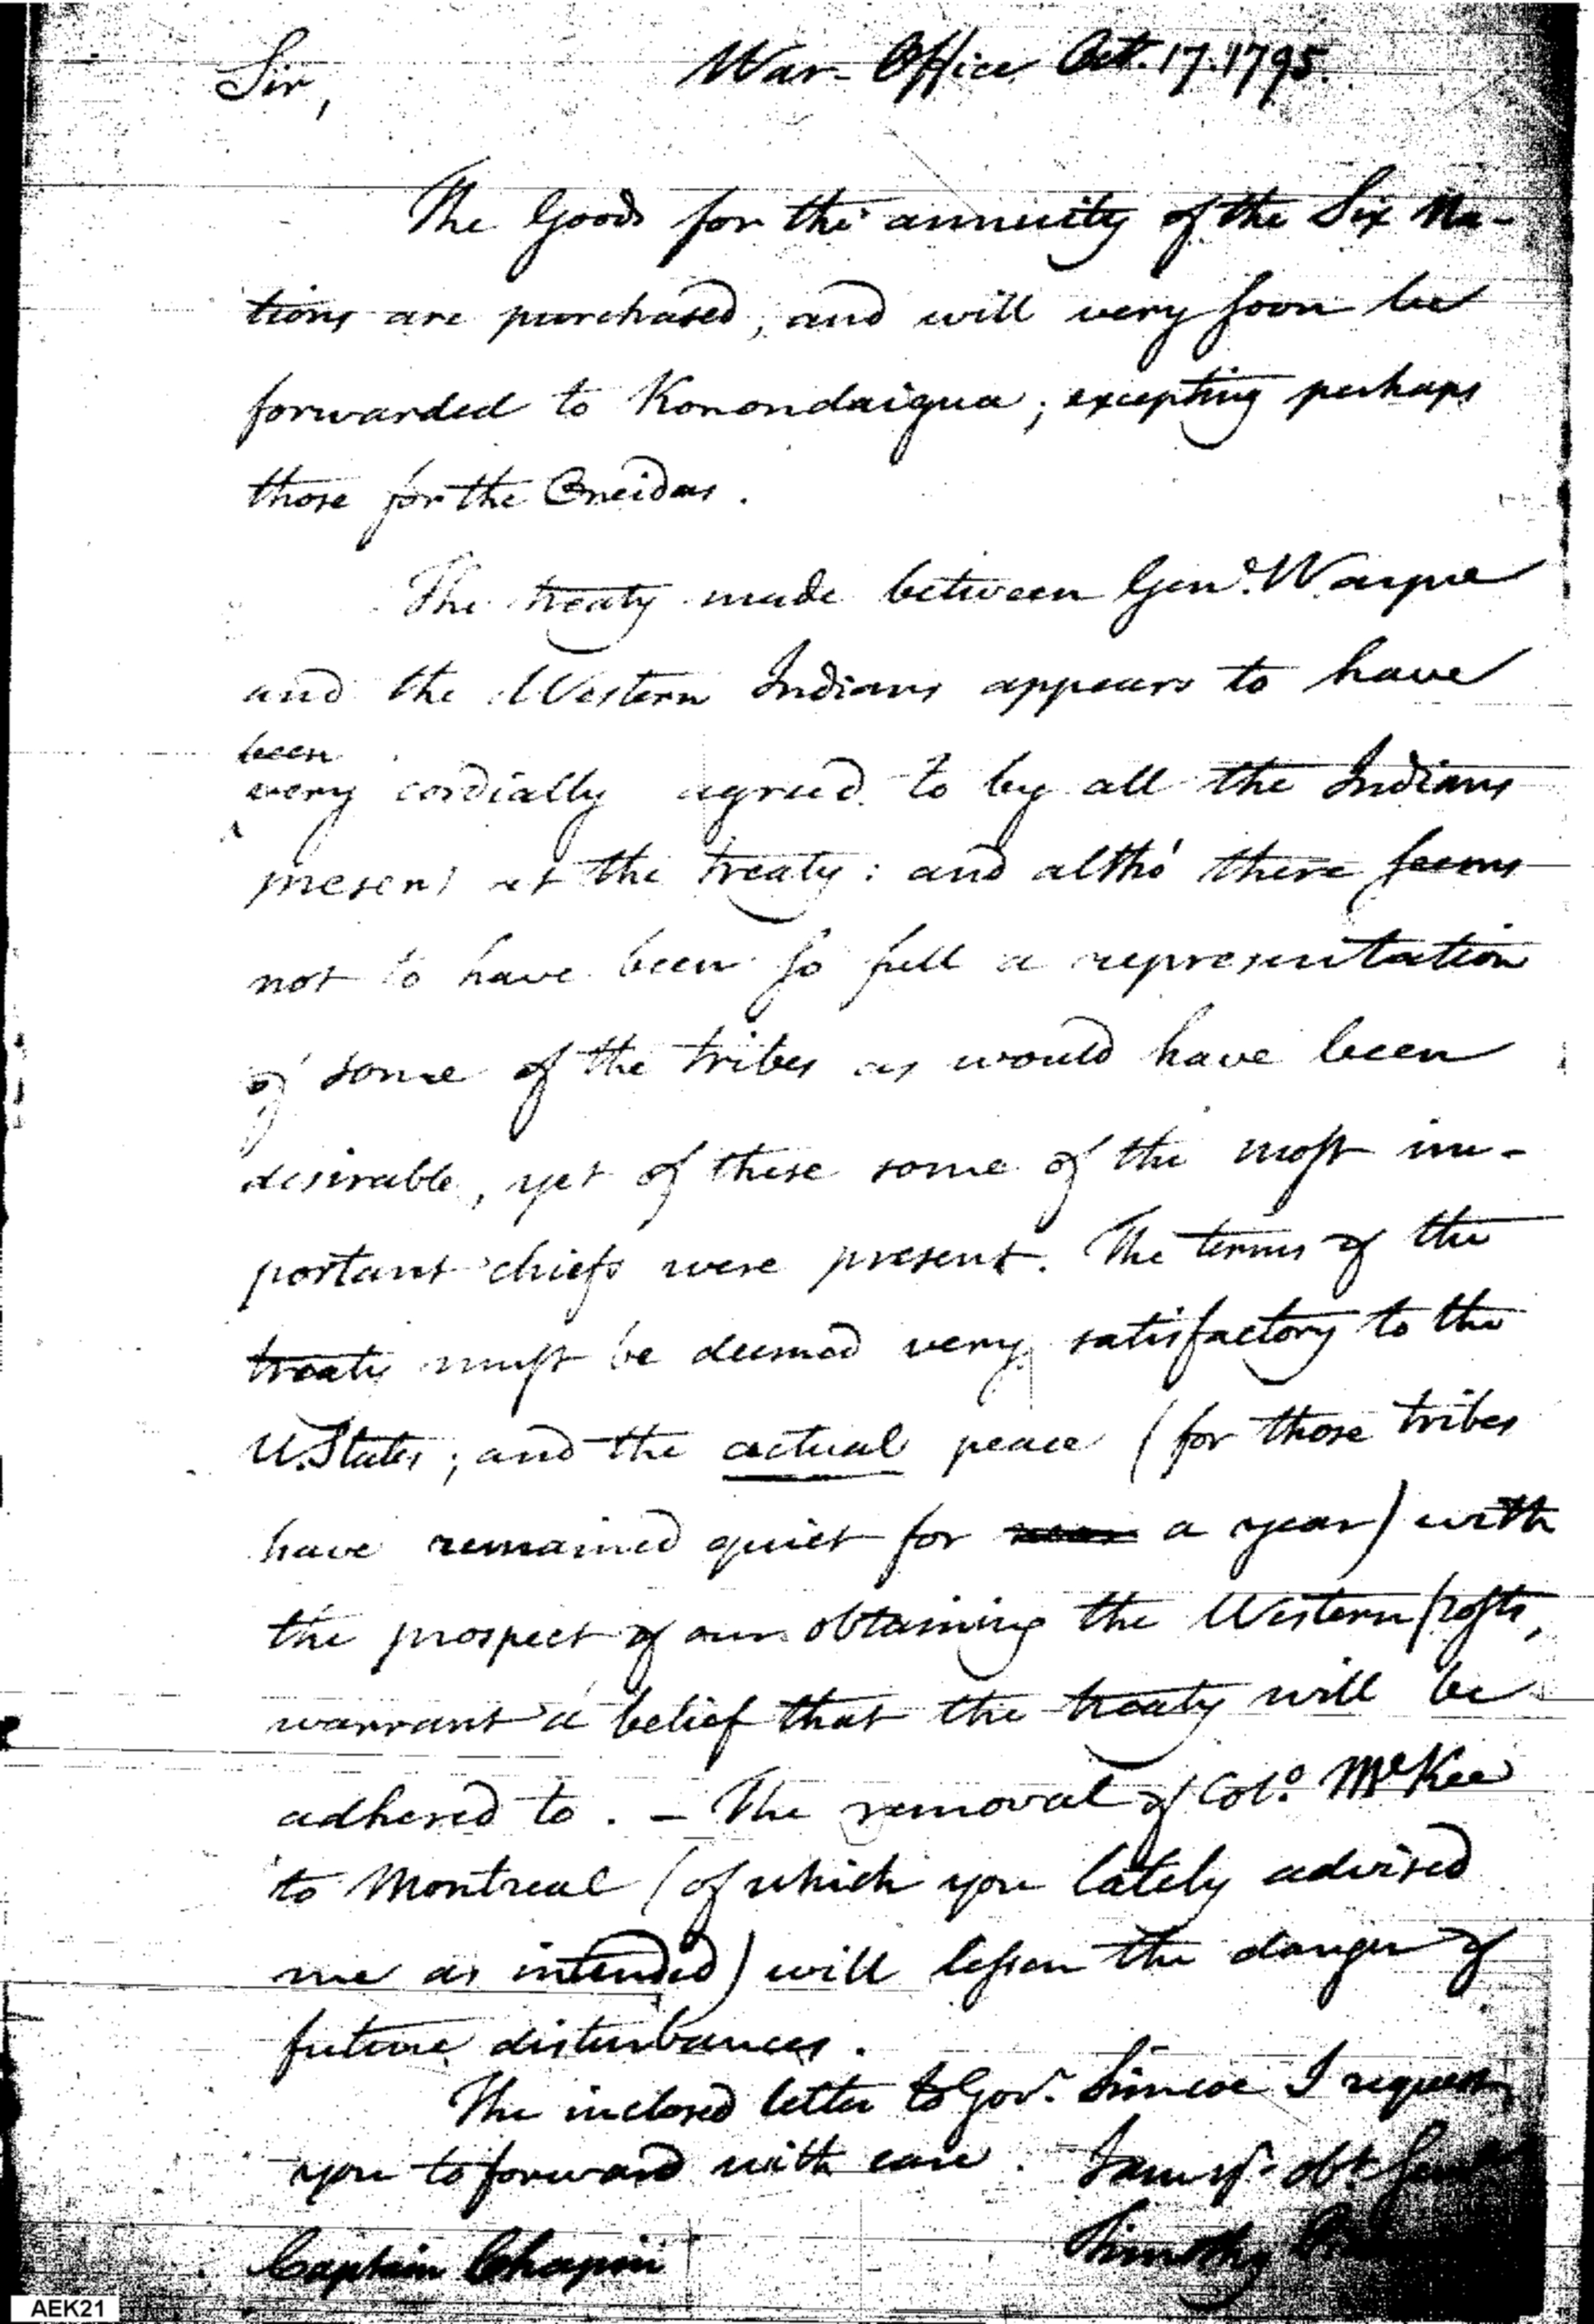 War-Office Oct. 17. 1795.
Sir,
The Goods for the annuity of the Six Na-
tions are purchased, and will very soon be
forwarded to Konondaigua; excepting perhaps
those for the Oneidas.
The treaty made between Genl. Wayne
and the Western Indians appears to have
been
very cordially agreed to by all the Indians
^
present at the treaty: and altho' there seems
not to have been so full a representation
of some of the tribes as would have been
desirable, yet of these some of the most im-
portant chiefs were present. The terms of the
treaty must be deemed very satisfactory to the
U.States; and the actual peace (for those tribes
have remained quiet for a year) with
the prospect of our obtaining the Western posts,
warrant a belief that the treaty will be
adhered to. - The removal of Colo. McKee
to Montreal (of which you lately advised
me as intended) will lessen the danger of
future disturbances.
The inclosed letter to Govr. Simcoe I request
you to forward with care. I am sr. obt.
Timothy
Captain Chapin
AEK21